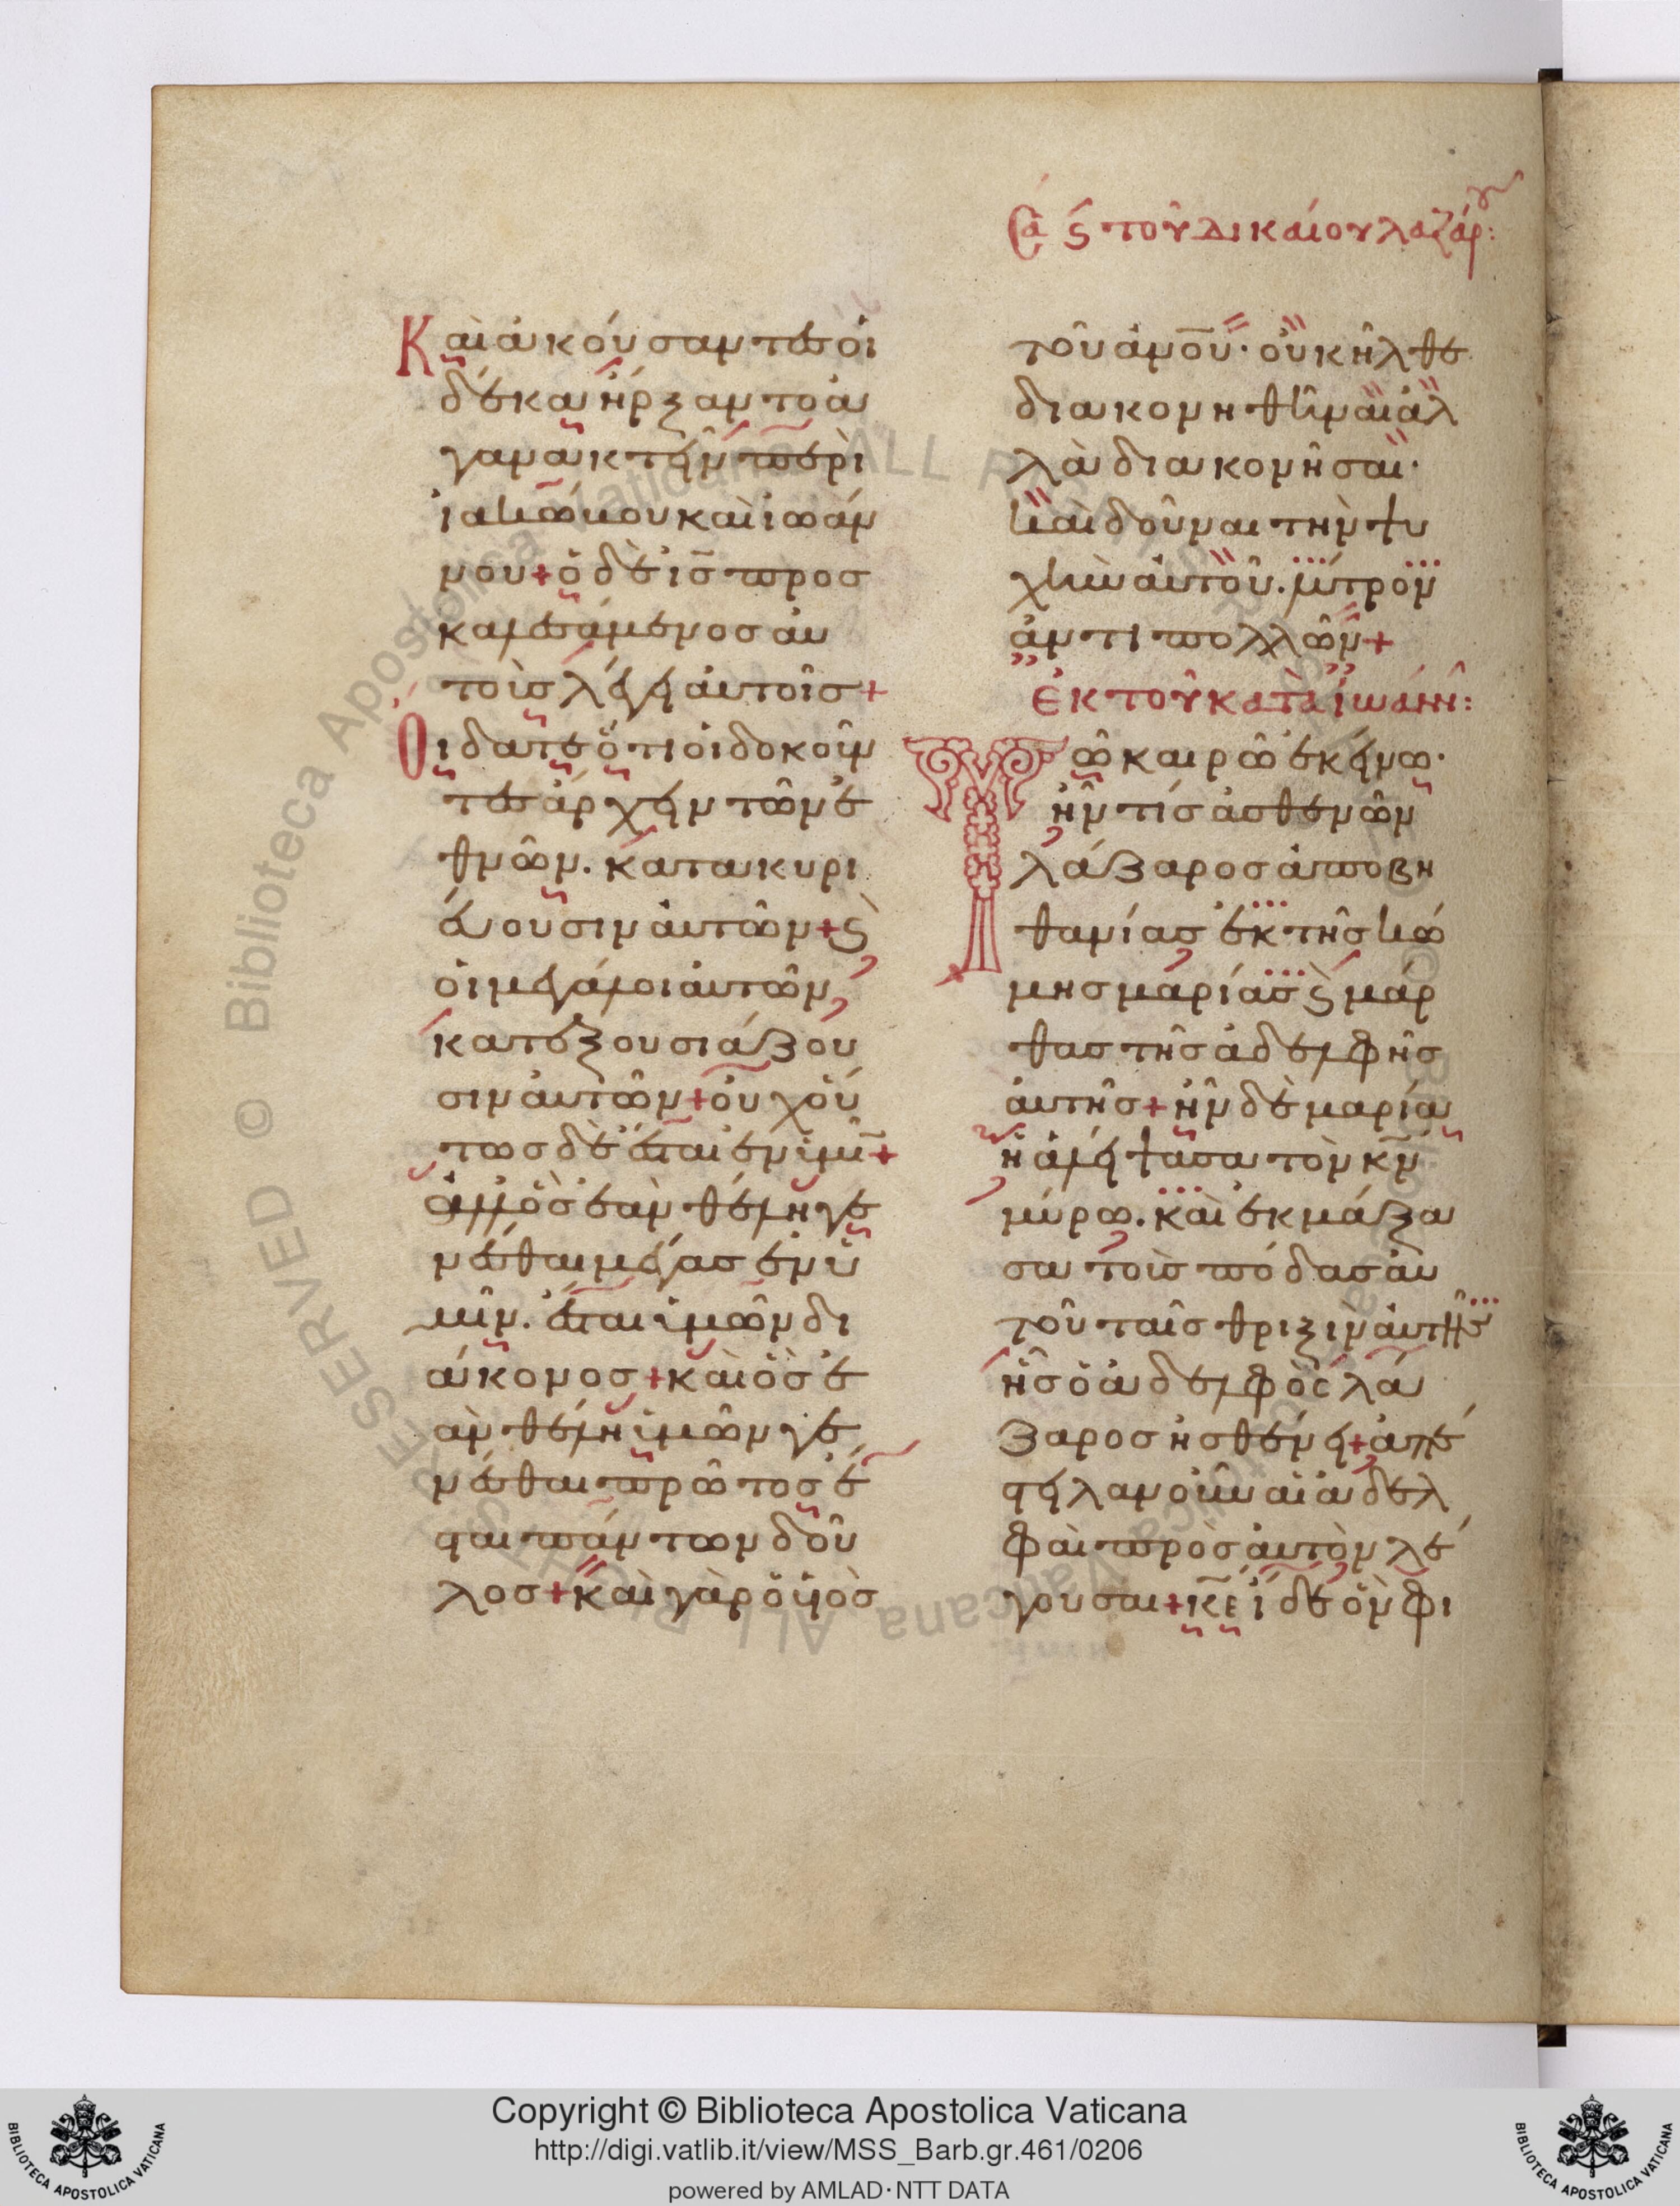 Σα ϛ τοῦ δικαίου λαζάρ:
Και ἀκούσαντες οἱ
δέκα ἤρξαντο ἀ
γανακτεῖν περὶ
ἰακώβου καὶ ἰωάν
νου + ὁ δὲ ἰς̅ προσ
καλεσάμενος αὐ
τοὺς λέγει αὐτοῖς +
Οἴδατε ὅτι οἱ δοκοῦν
τες ἄρχειν τῶν ἐ
θνῶν. κατακυρι
εύουσιν αὐτῶν + ϛ
οἱ μεγάλοι αὐτῶν
κατεξουσιάζου
σιν αὐτῶν + οὐχ οὕ
τως δὲ ἔσται ἐν ὑμῖ̅ +
ἀλλ' ὃς ἐὰν θέλῃ γε
νέσθαι μέγας ἐν ὑ
μῖν. ἔσται ὑμῶν δι
άκονος + καὶ ὃς ἐ
ὰν θέλῃ ὑμῶν γε
νέσθαι πρῶτος ἔ
σται πάντων δοῦ
λος + καὶ γὰρ ὁ υἱὸς
τοῦ ἀνο̅υ̅· οὐκ ἦλθε
διακονηθῆναι ἀλ
λὰ διακονῆσαι·
καὶ δοῦναι τὴν ψυ
χὴν αὐτοῦ. λύτρον
ἀντὶ πολλῶν +
ἐκ τοῦ κατὰ ἰωάνν:
Τῶ καιρῶ ἐκείνω·
ἦν τίς ἀσθενῶν
λάζαρος ἀπὸ βη
θανίας ἐκ τῆς κώ
μης μαρίας ϛ μάρ
θας τῆς ἀδελφῆς
αὐτῆς + ἦν δὲ μαρία
ἡ ἀλείψασα τὸν κν̅
μύρω. καὶ ἐκμάξα
σα τοὺς πόδας αὐ
τοῦ ταῖς θριξὶν αὐτῆς
ἧς ὁ ἀδελφὸς λά
ζαρος ἠσθένει + ἀπέ
στειλαν οὖν αἱ ἀδελ
φαὶ πρὸς αὐτὸν λέ
γουσαι + κε̅ ἴδε ὃν φι
Copyright © Biblioteca Apostolica Vaticana
http://digi.vatlib.it/view/MSS_Barb.gr.461/0206
powered by AMLAD·NTT DATA